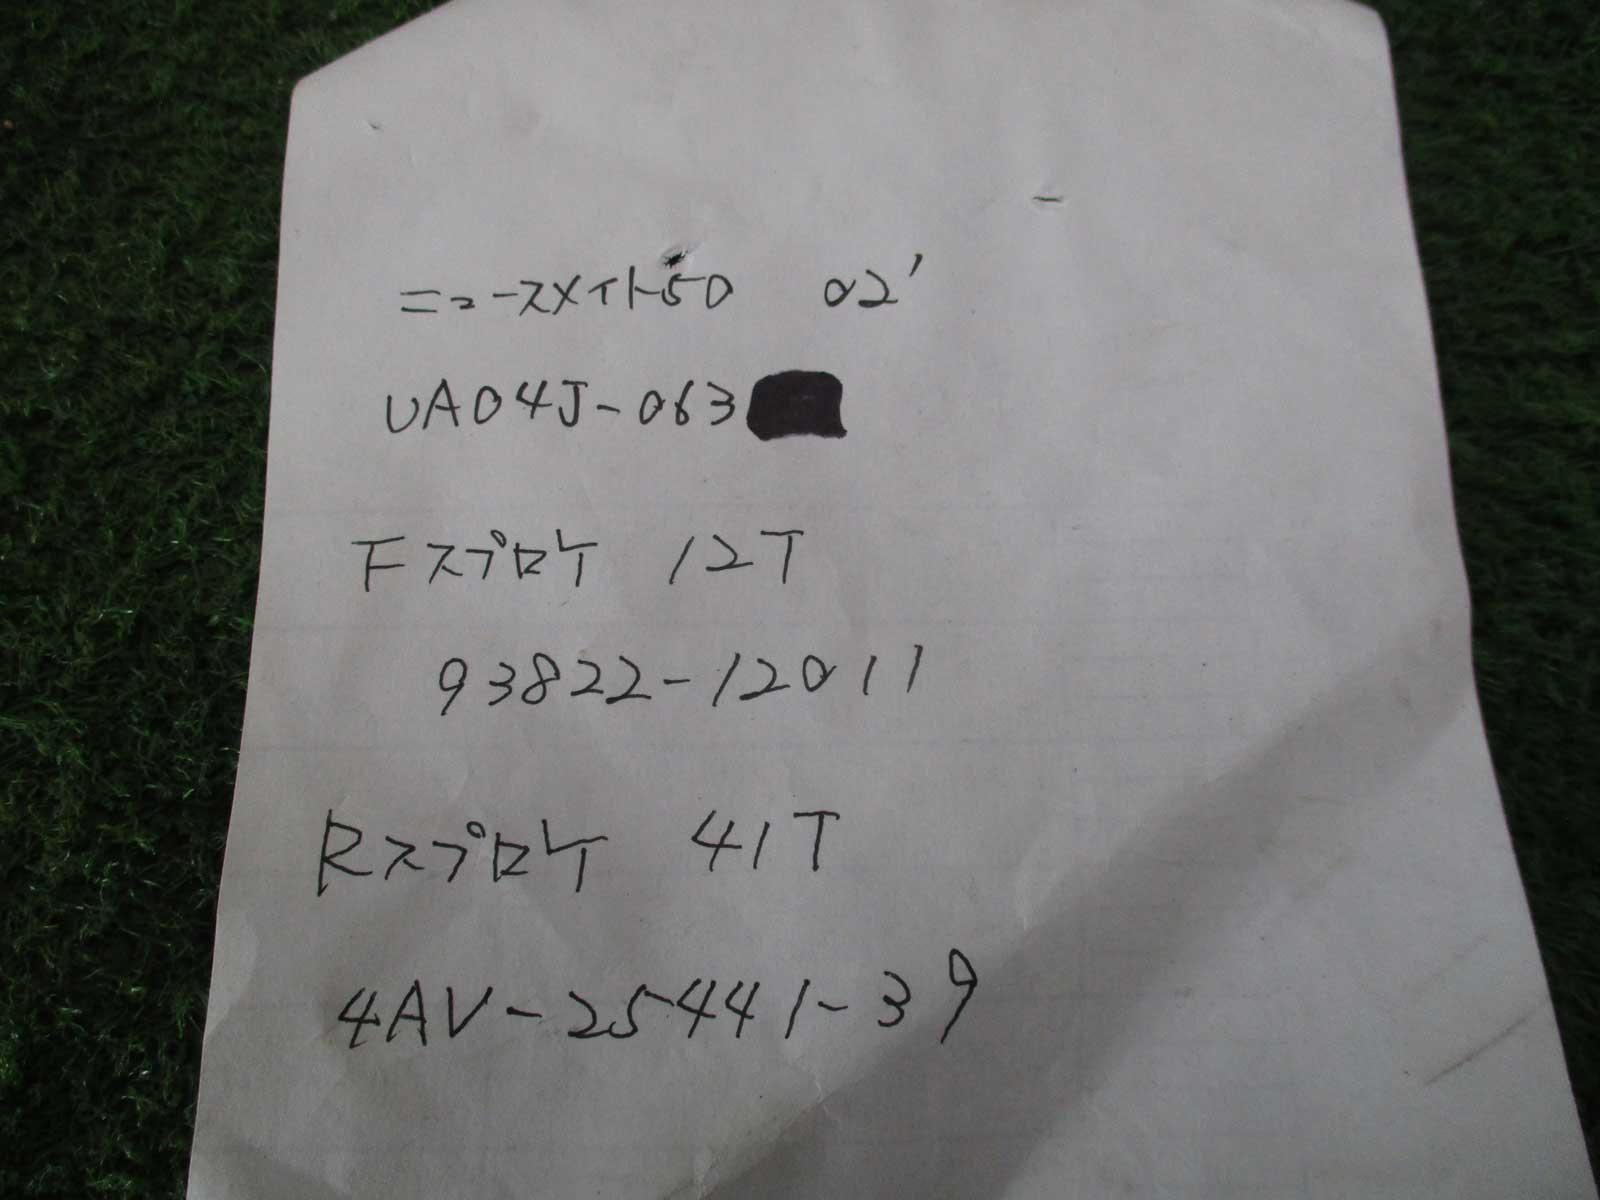 ニュースメイト50 02'
UA04J-063
Fスプロケ 12T
93822-12011
Rスプロケ 41T
4AV-25441-39